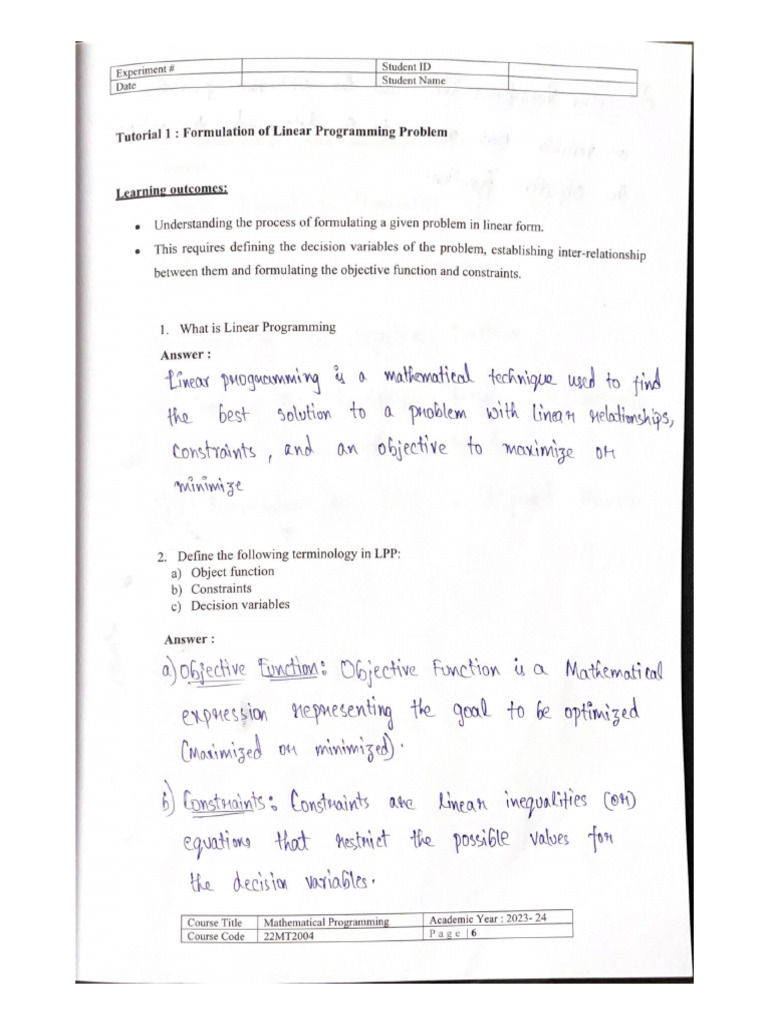 Experiment # Student ID
Date Student Name
Tutorial 1 : Formulation of Linear Programming Problem
Learning outcomes:
• Understanding the process of formulating a given problem in linear form.
• This requires defining the decision variables of the problem, establishing inter-relationship
between them and formulating the objective function and constraints.
1. What is Linear Programming
Answer :
Linear programming is a mathematical technique used to find
the best solution to a problem with linear relationships,
constraints, and an objective to maximize or
minimize
2. Define the following terminology in LPP:
a) Object function
b) Constraints
c) Decision variables
Answer :
a) Objective Function: Objective Function is a Mathematical
expression representing the goal to be optimized
(Maximized or minimized).
b) Constraints: Constraints are linear inequalities (or)
equations that restrict the possible values for
the decision variables.
Course Title Mathematical Programming Academic Year : 2023- 24
Course Code 22MT2004 Page | 6